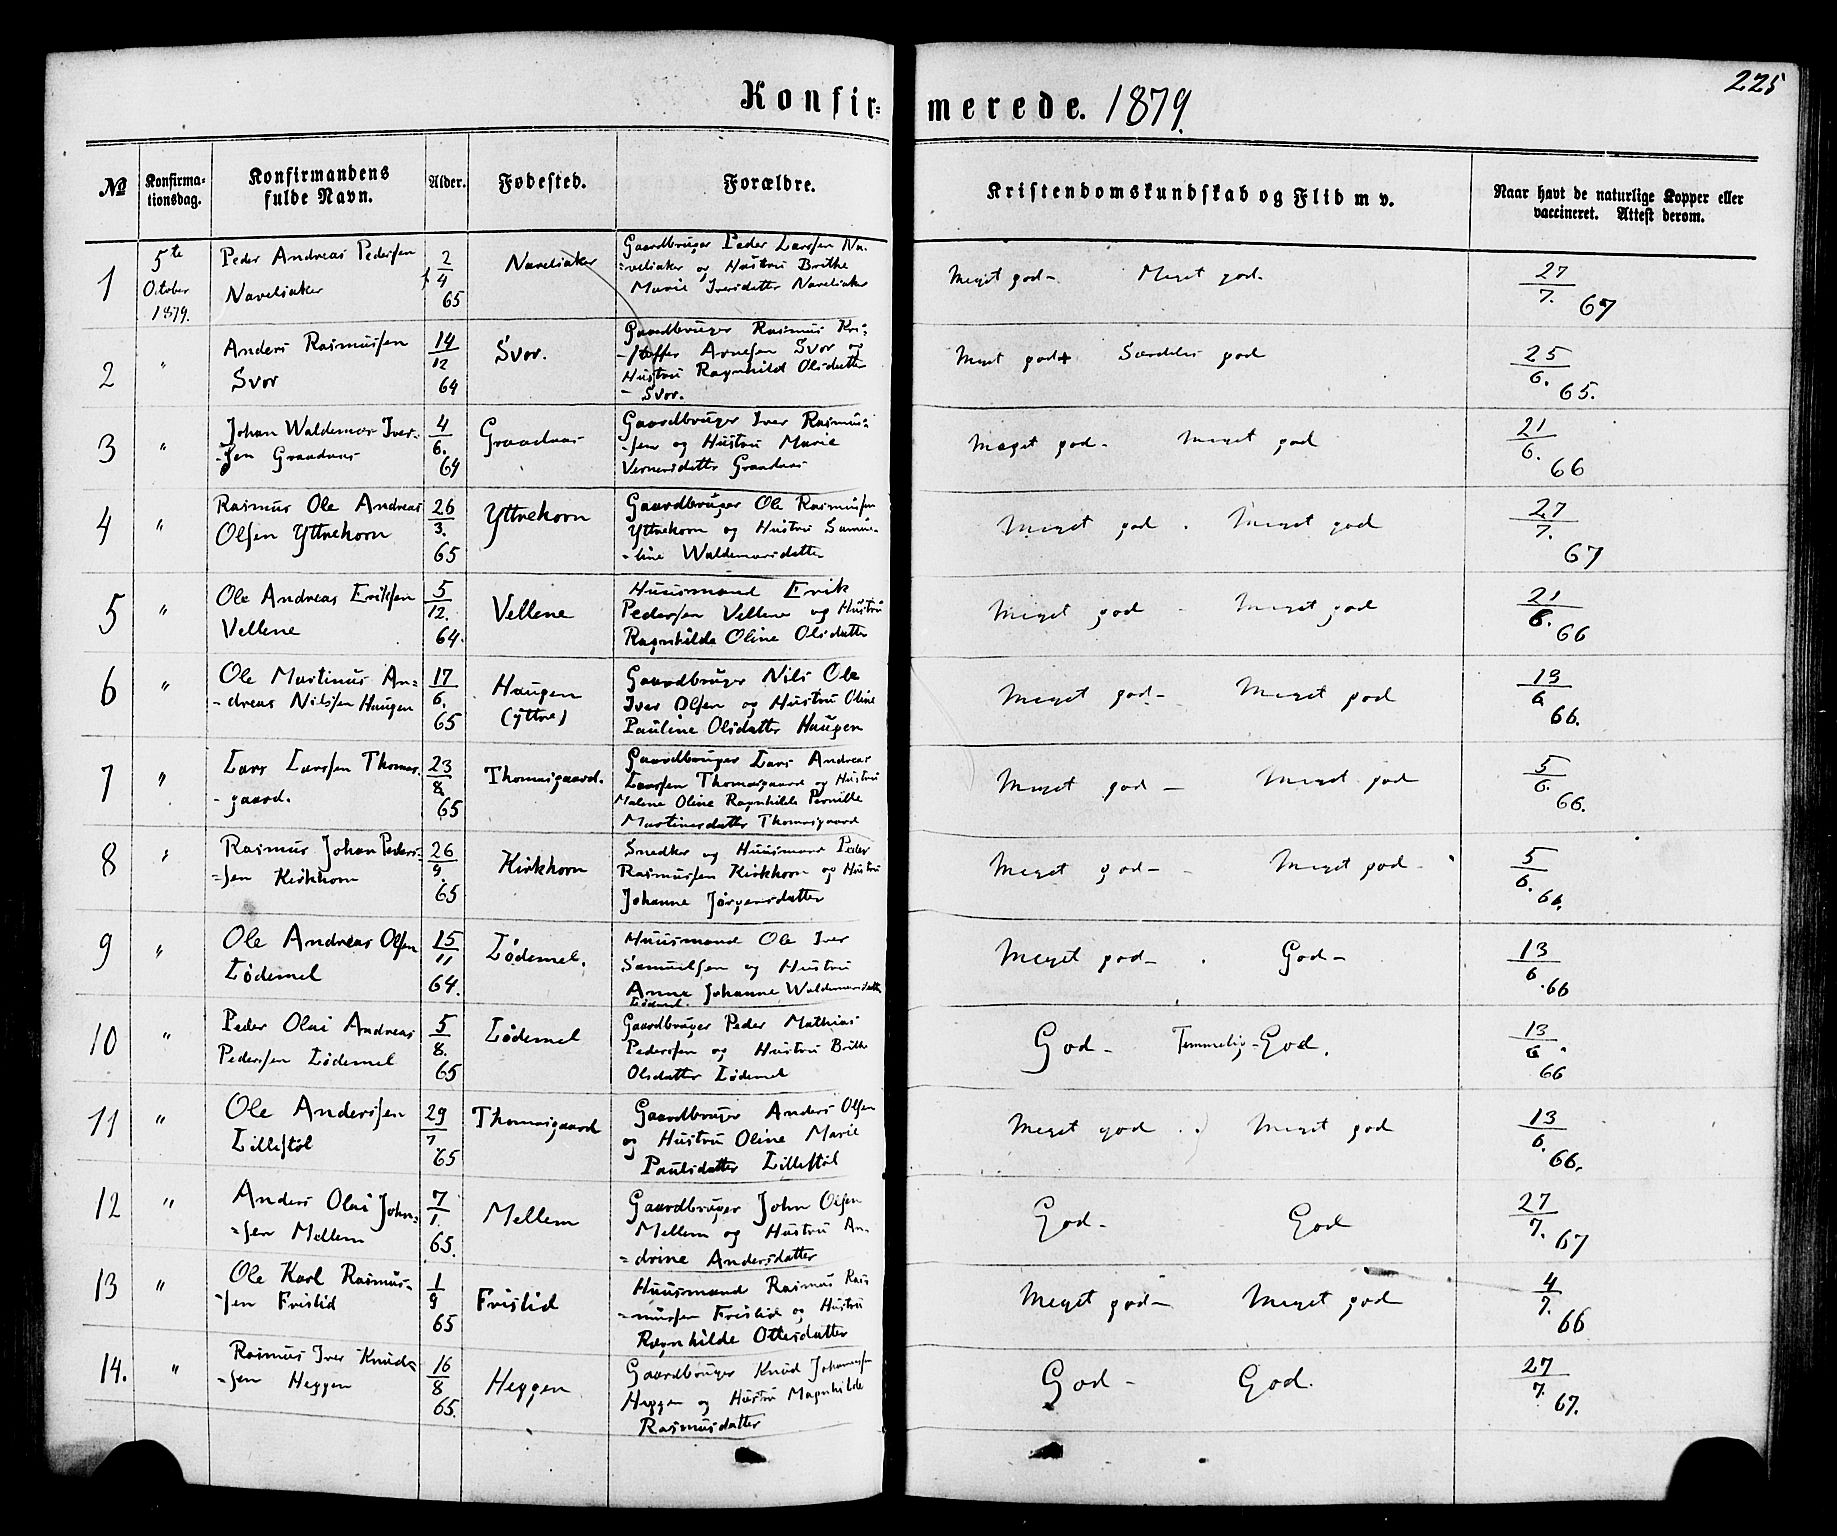 225
Konfir- merede. 1879.
№
Konfirma-
tionsdag.
Konfirmandens
fulde Navn.
Alder.
Fødested.
Forældre.
Kristendomskundskab og Flid m v.
Naar havt de naturlige Kopper eller
vaccineret. Attest derom.
1
5te
October
1879.
Peder Andreas Pederssen
Naveliaker
2/4 65
Naveliaker
Gaardbruger Peder Larssen Na-
-veliaker og Hustru Brithe
Marie Iversdatter Naveliaker
Meget god - Meget god.
27/7. 67
2
"
Anders Rasmussen
Svor
14/12 64
Svor.
Gaardbruger Rasmus Kri-
-stoffer Arnesen Svor og
Hustru Ragnhild Olsdatter
- Svor.
Meget god + Særdeles god
25/6. 65.
3
"
Johan Waldemar Iver-
-sen Graadaas
4/6. 64
Graadaas
Gaardbruger Iver Rasmus-
-sen og Hustru Marie
Vernersdatter Graadaas
Meget god - Meget god
21/6. 66
4
"
Rasmus Ole Andreas
Olsen Yttrehorn
26/3. 65
Yttrehorn
Gaardbruger Ole Rasmussen
Yttrehorn og Hustru Samue-
-line Waldemarsdatter
Meget god . Meget god
27/7. 67
5
"
Ole Andreas Eriksen
Vellene
5/12. 64.
Vellene
Huusmand Erik
Pederssen Vellene og Hustru
Ragnhilde Oline Olsdatter
Meget god - Meget god
21/6. 66
6
"
Ole Martinus An-
-dreas Nilssen Haugen
17/6. 65
Haugen
(yttre)
Gaardbruger Nils Ole
Iver Olsen og Hustru Oline
Pauline Olsdatter Haugen
Meget god - Meget god
19/6 66.
7
"
Lars Larssen Thomas-
- gaard.
23/8 65
Thomasgaard.
Gaardbruger Lars Andreas
Larssen Thomasgaard og Hustru
Malene Oline Ragnhilde Pernille
Martinesdatter Thomasgaard
Meget god - Meget god
5/6. 66.
8
"
Rasmus Johan Peders-
-sen Kirkhorn
26/9. 65
Kirkhorn
Snedker og Huusmand Peder
Rasmussen Kirkhorn og Hustru
Johanne Jørgensdatter
Meget god - Meget god -
5/6. 66.
9
"
Ole Andreas Olsen
Lødemel
15/11 64.
Lødemel.
Huusmand Ole Iver
Samuelsen og Hustru
Anne Johanne Waldemarsdatter
Lødemel.
Meget god - . God -
13/6 66
10
"
Peder Olai Andreas
Pederssen Lødemel
5/8. 65
Lødemel
Gaardbruger Peder Mathias
Pederssen og Hustru Brithe
Olsdatter Lødemel
God - Temmelig - God.
13/6 66
11
"
Ole Anderssen
Lillestøl
29/7 65
Thomasgaard
Gaardbruger Anders Olsen
og Hustru Oline Marie
Paulsdatter Lillestøl
Meget god . Meget god
13/6. 66.
12
"
Anders Olai John-
-sen Mellem
7/1. 65.
Mellem
Gaardbruger John Olsen
Mellem og Hustru An-
-drine Andersdatter
God - God
27/7. 67
13
"
Ole Karl Rasmus-
-sen Fristid
1/9 65
Fristid
Huusmand Rasmus Ras
-mussen Fristid og Hustru
Ragnhilde Ottesdatter
Meget god - Meget god
4/7. 66
14.
"
Rasmus Iver Knud-
-sen Heggen
16/8 65.
Heggen
Gaardbruger Knud Johannessen
Heggen og Hustru Magnhilde
Rasmusdatter
God - God.
27/7. 67.